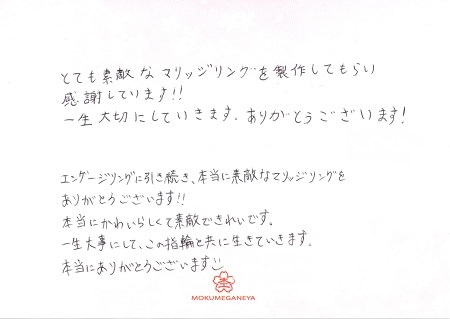 とても素敵なマリッジリングを製作してもらい
感謝しています!!
一生大切にしていきます。ありがとうございます!
エンゲージリングに引き続き、本当に素敵なマリッジリングを
ありがとうございます!!
本当にかわいらしくて素敵できれいです。
一生大事にして、この指輪と共に生きていきます。
本当にありがとうございます
MOKUMEGANEYA